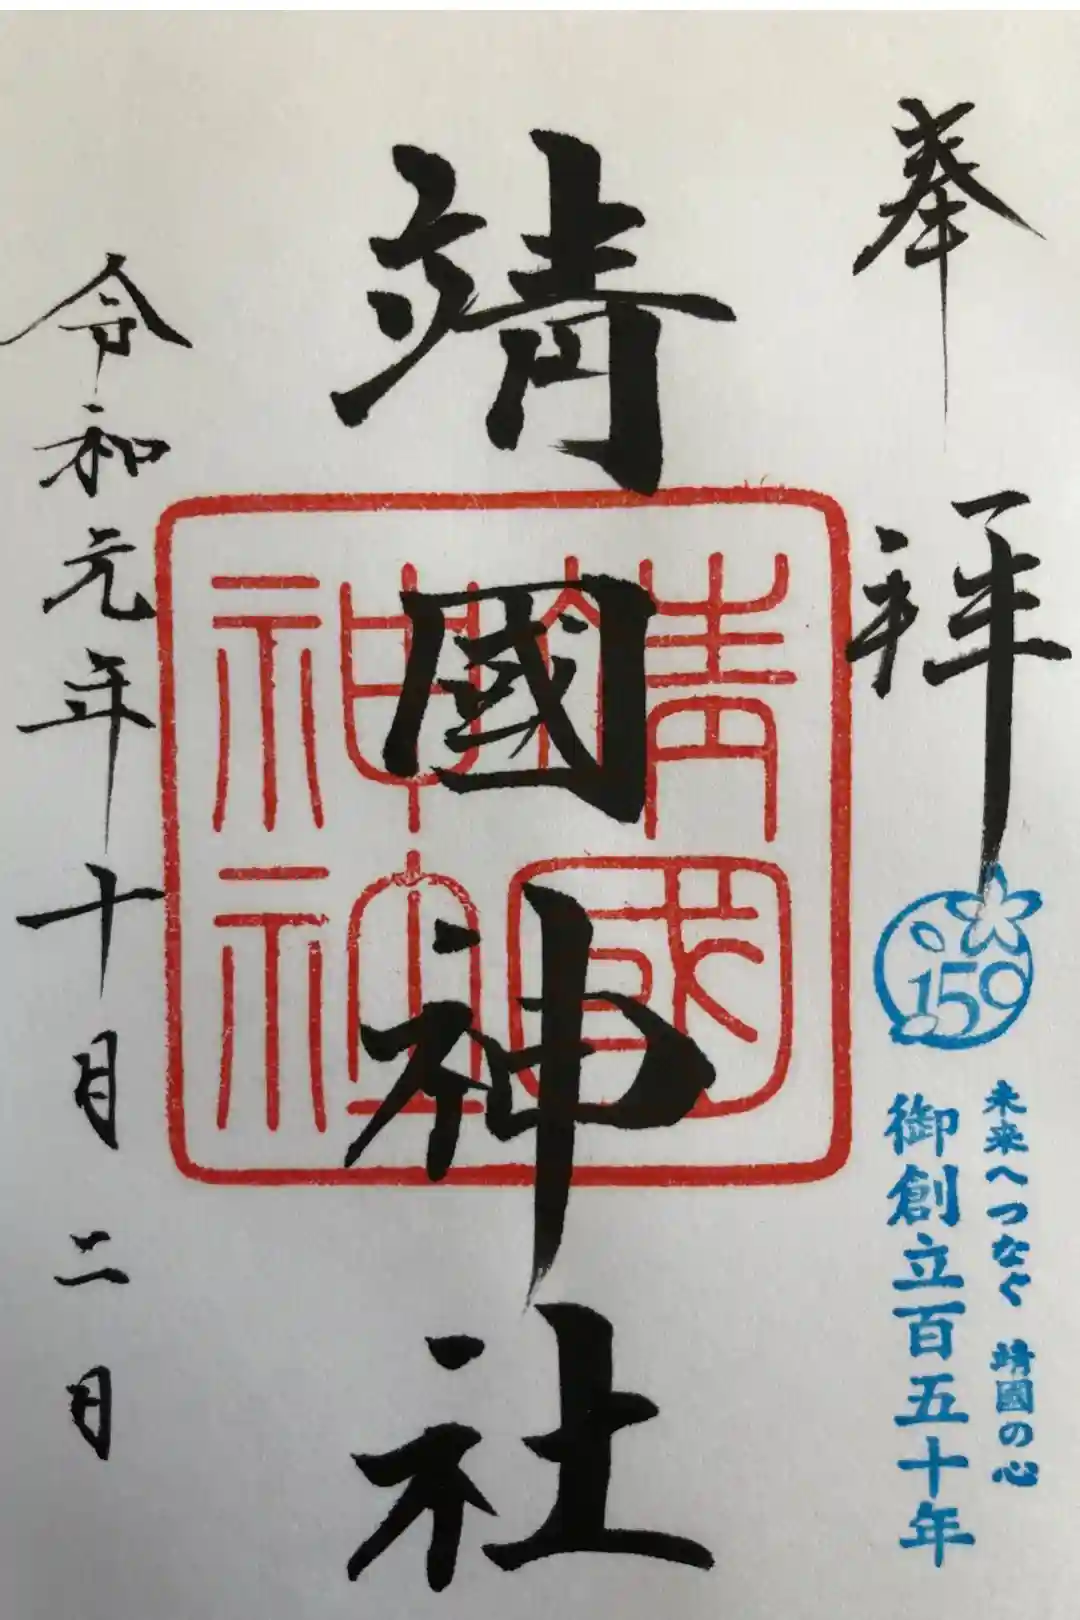 奉拝
150
未来へつなぐ 靖國の心
御創立百五十年
靖國神社
靖國
神社
令和元年十月二日